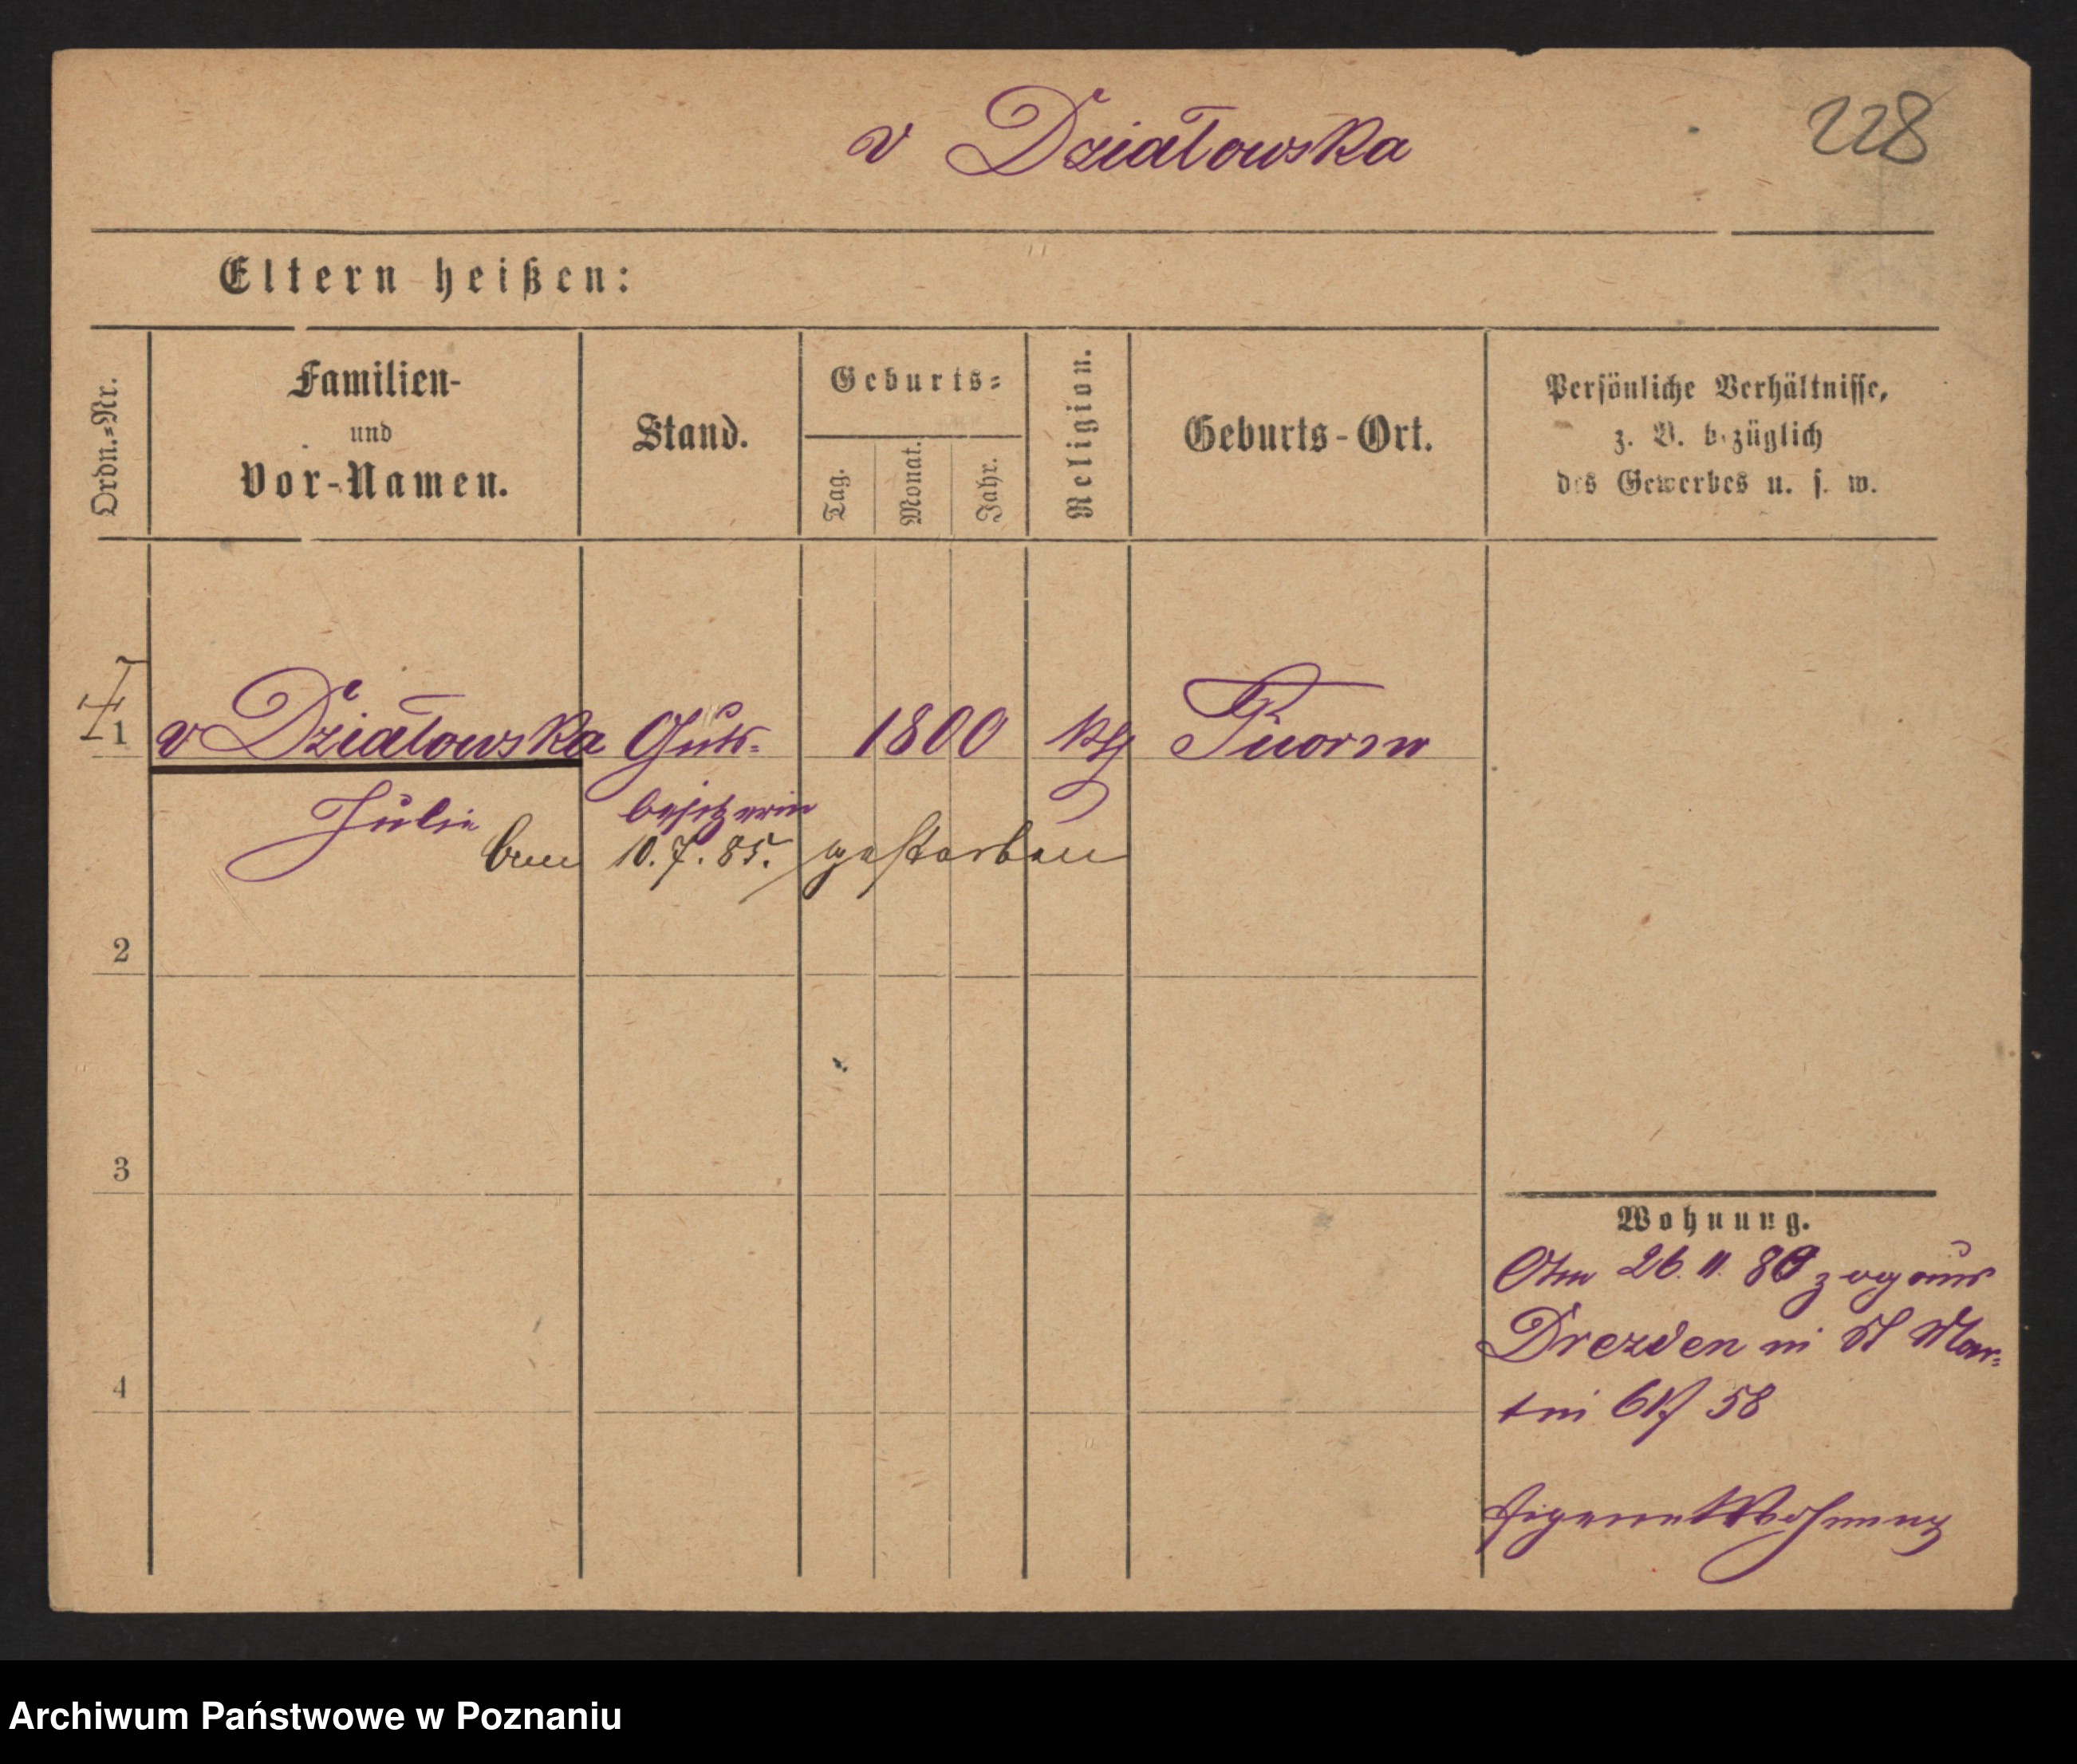 v Działowska
228
Eltern heißen:
Ordn.=Nr.
Familien-
und
Vor-Namen.
Stand.
Geburts=
Tag.
Monat.
Jahr.
Religion.
Geburts-Ort.
Persönliche Verhältnisse,
z. B. bezüglich
des Gewerbes u. s. w.
1 v Działowska Guts= 1800
Julie besitzerin
10. 7. 85. gestorben
2
3
4
Wohnung.
Am 26. 11. 80 zog aus
Drezden in St Mar=
tin 58
Eigene Wohnung
Archiwum Państwowe w Poznaniu